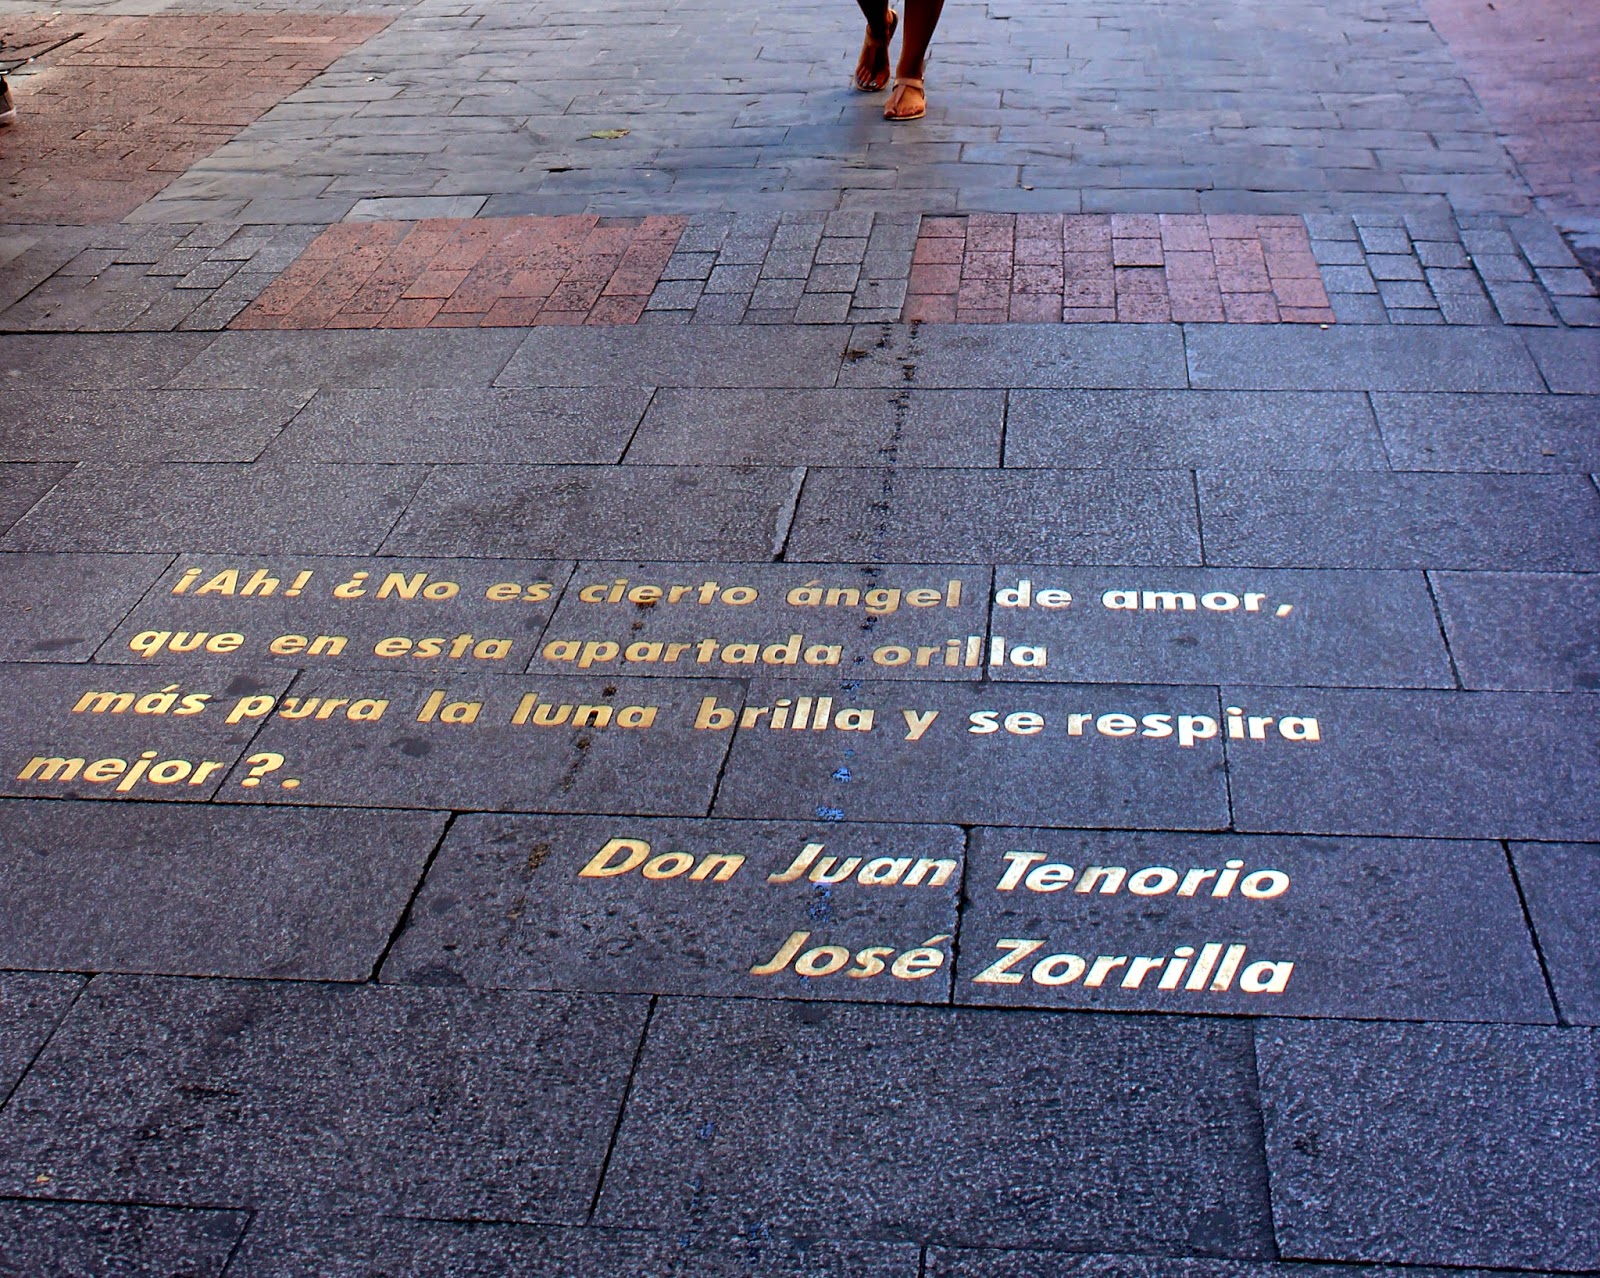 ¡Ah! ¿No es cierto ángel de amor,
que en esta apartada orilla
más pura la luna brilla y se respira
mejor?.
Don Juan Tenorio
José Zorrilla